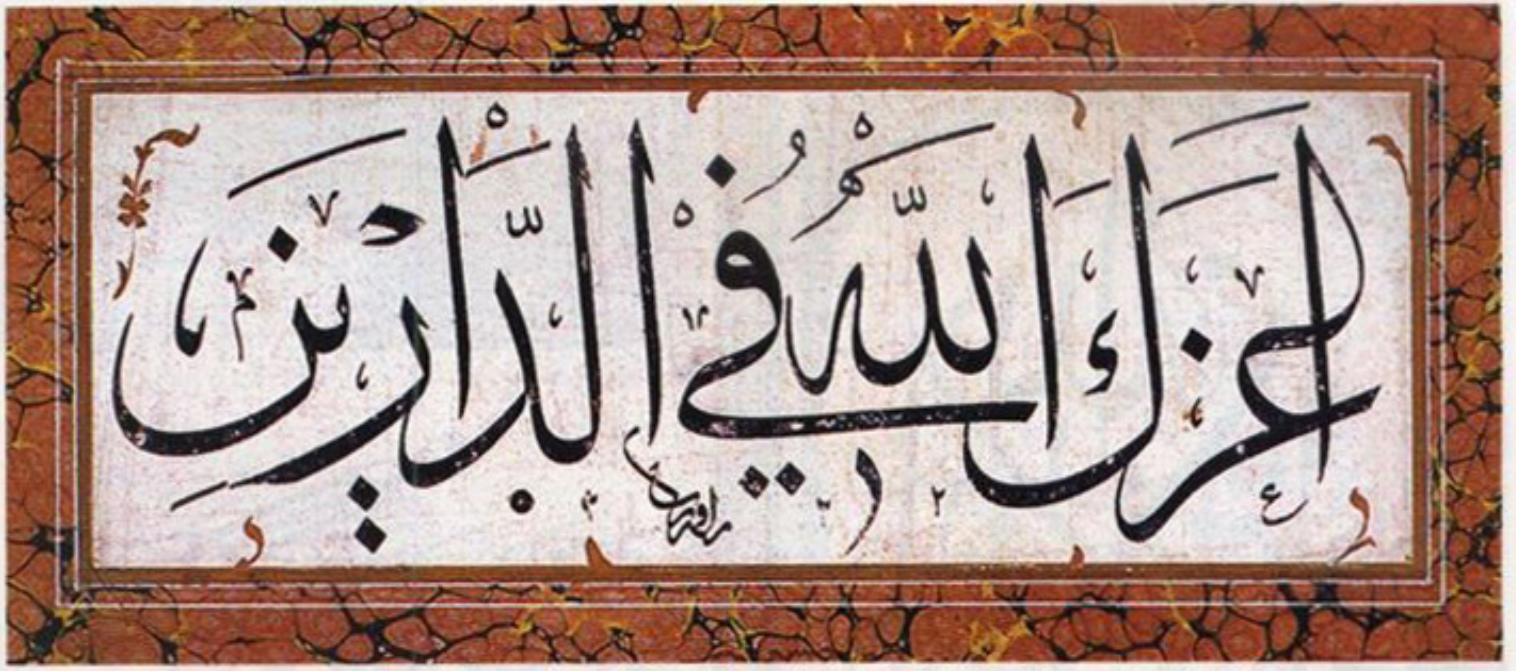 اَعَزَّكَ اللّٰهُ فِي الدَّارَيْنِ